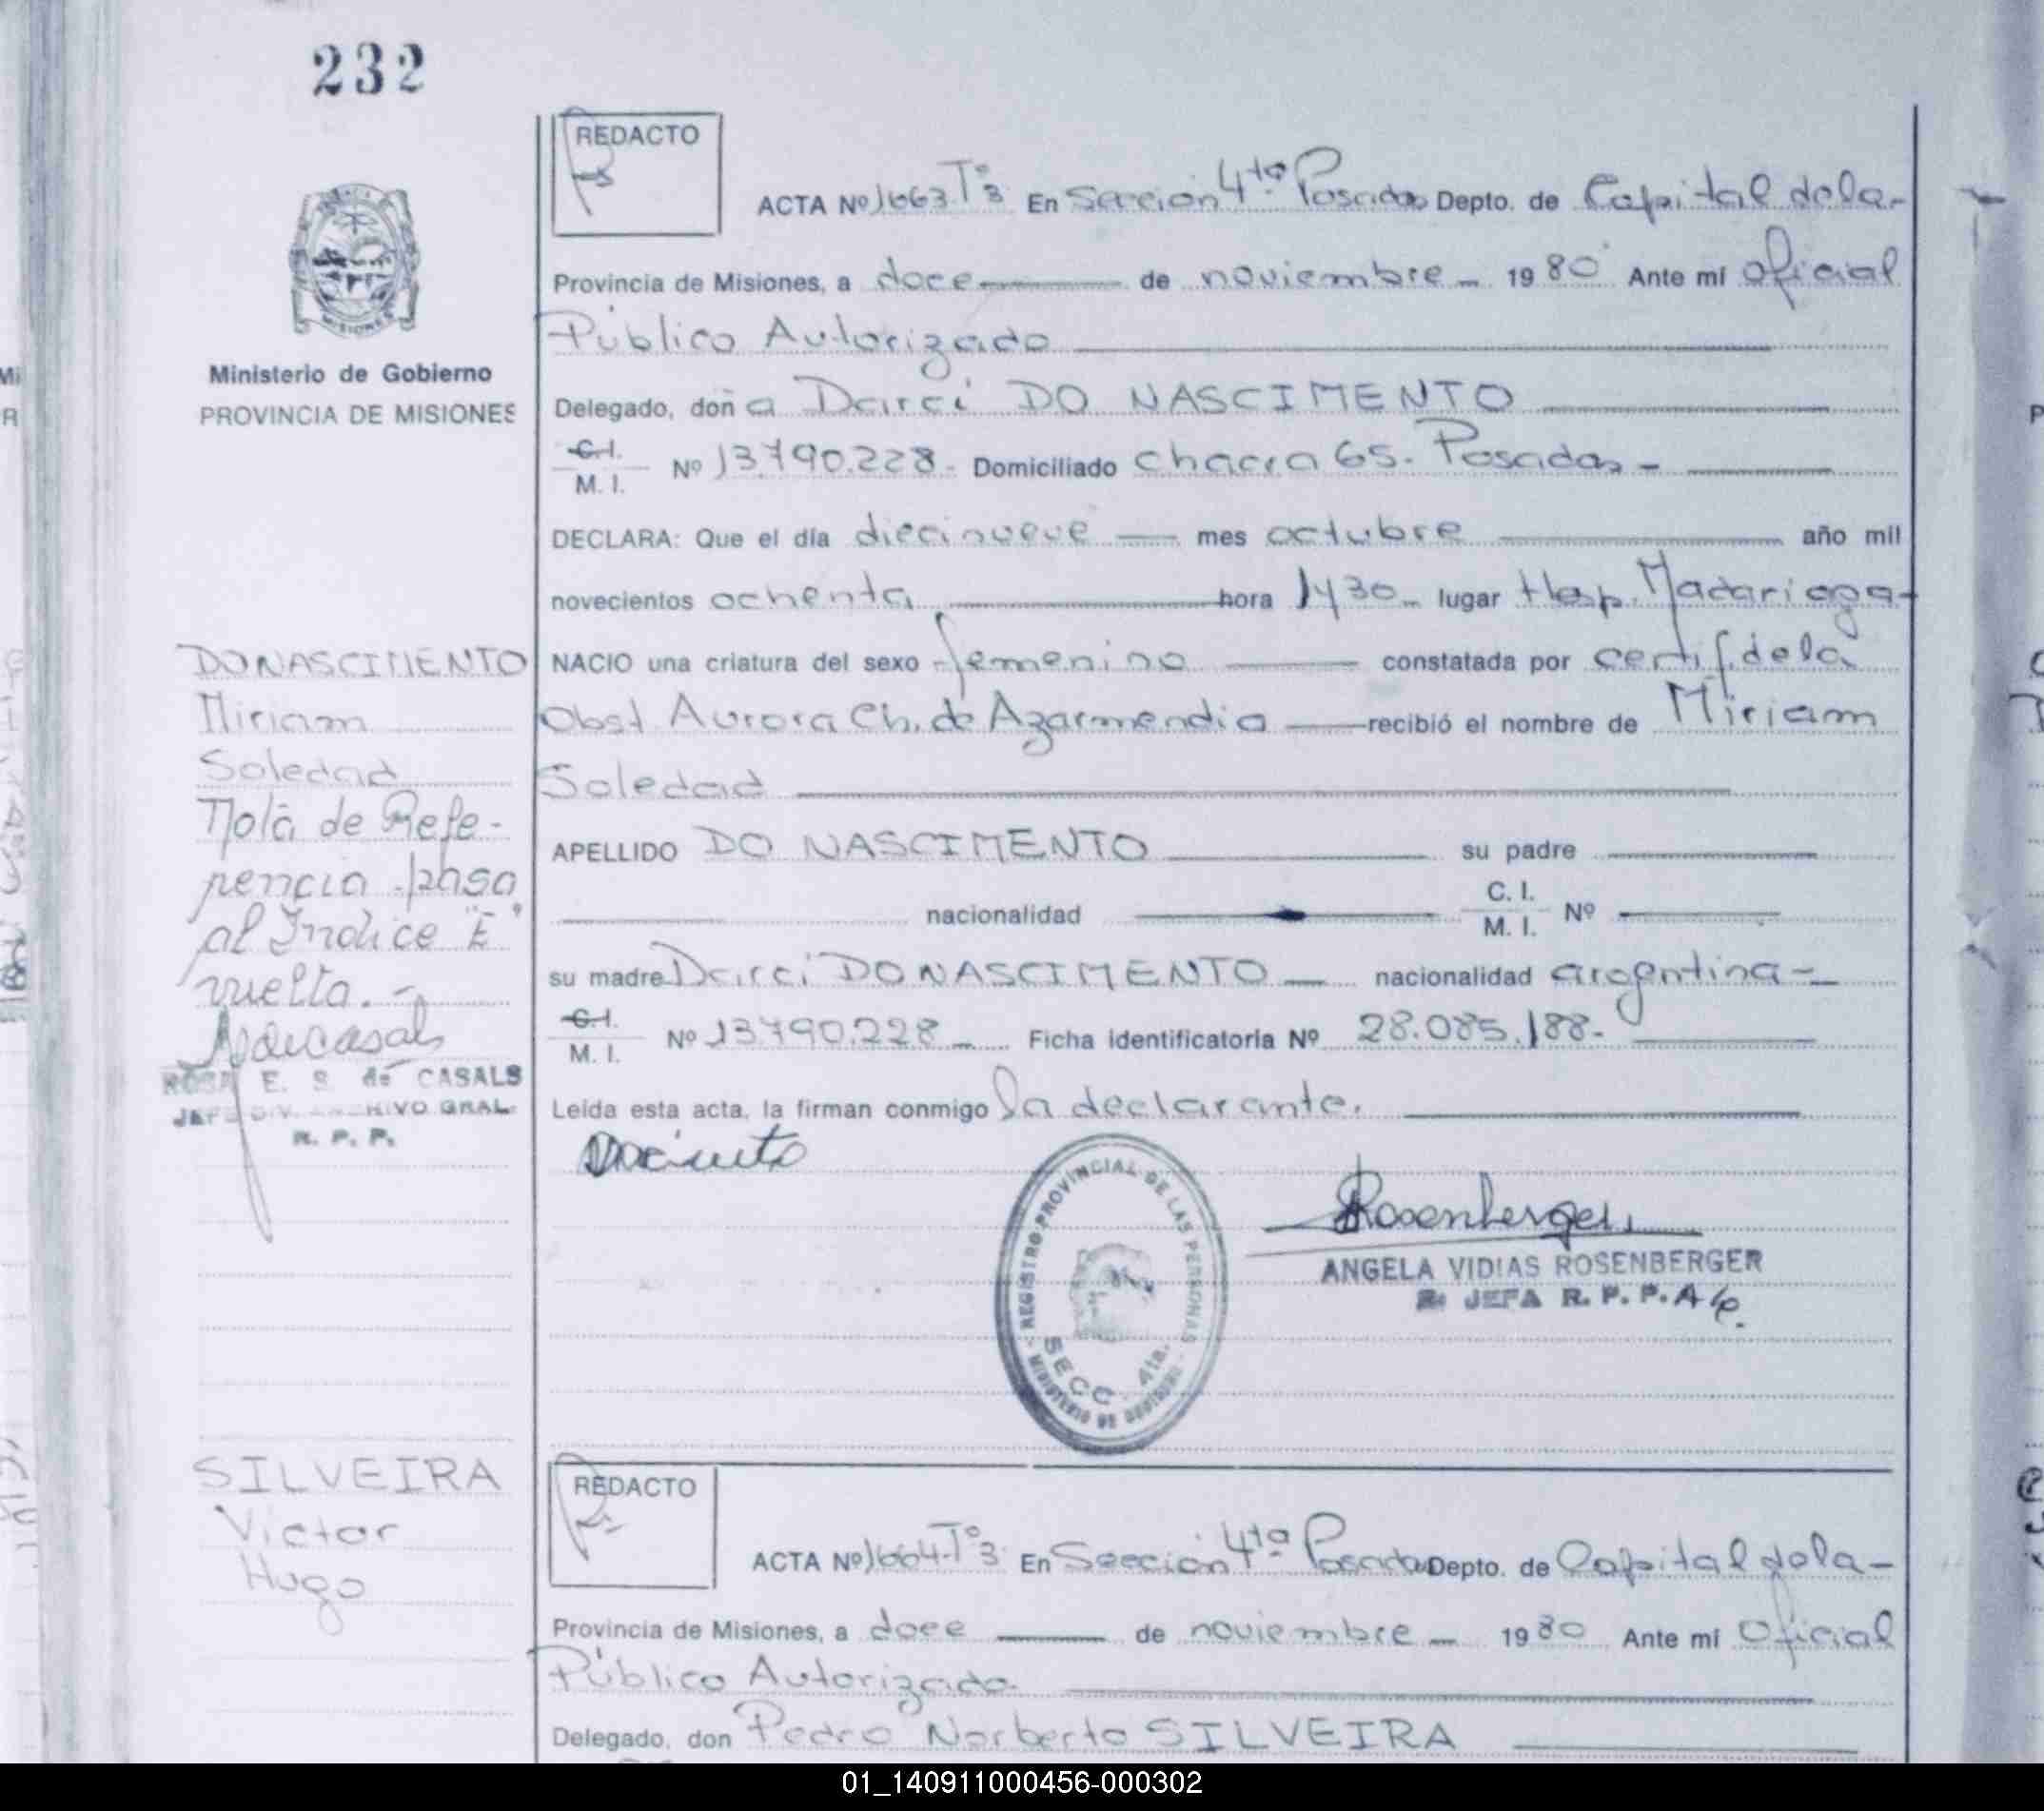 232
REDACTO
ACTA Nº 1663 Tº3 En Sección 4ta Posadas Depto. de Capital de la-
Provincia de Misiones, a doce de noviembre 1980 Ante mí Oficial
Público Autorizado
Ministerio de Gobierno
PROVINCIA DE MISIONES
Delegado, doña Darci DO NASCIMENTO
C.I.
M. I. Nº 13.790.228- Domiciliado Chacra 65. Posadas-
DECLARA: Que el día diecinueve mes octubre año mil
novecientos ochenta hora 1430 lugar Hosp. Madariaga-
DO NASCIMENTO
Miriam
Soledad
Nota de Refe-
rencia paso
al Indice "E"
vuelta.-
ROSA E. S. de CASALS
JEFE DIV. ARCHIVO GRAL.
R. P. P.
NACIO una criatura del sexo femenino constatada por certif. de la
Obst. Aurora Ch. de Azarmendia recibió el nombre de Miriam
Soledad
APELLIDO DO NASCIMENTO su padre
nacionalidad C. I.
M. I. Nº
su madre Darci DO NASCIMENTO nacionalidad argentina-
C.I.
M. I. Nº 13.790.228 Ficha identificatoria Nº 28.085.188-
Leída esta acta, la firman conmigo la declarante.
REGISTRO PROVINCIAL DE LAS PERSONAS
SECC. 4ta.
MINISTERIO DE GOBIERNO
Rosenberger
ANGELA VIDIAS ROSENBERGER
JEFA R. P. P.
SILVEIRA
Victor
Hugo
REDACTO
ACTA Nº 1664-Tº3 En Sección 4ta Posadas Depto. de Capital de la-
Provincia de Misiones, a doce de noviembre 1980 Ante mí Oficial
Público Autorizado
Delegado, don Pedro Norberto SILVEIRA
01_140911000456-000302